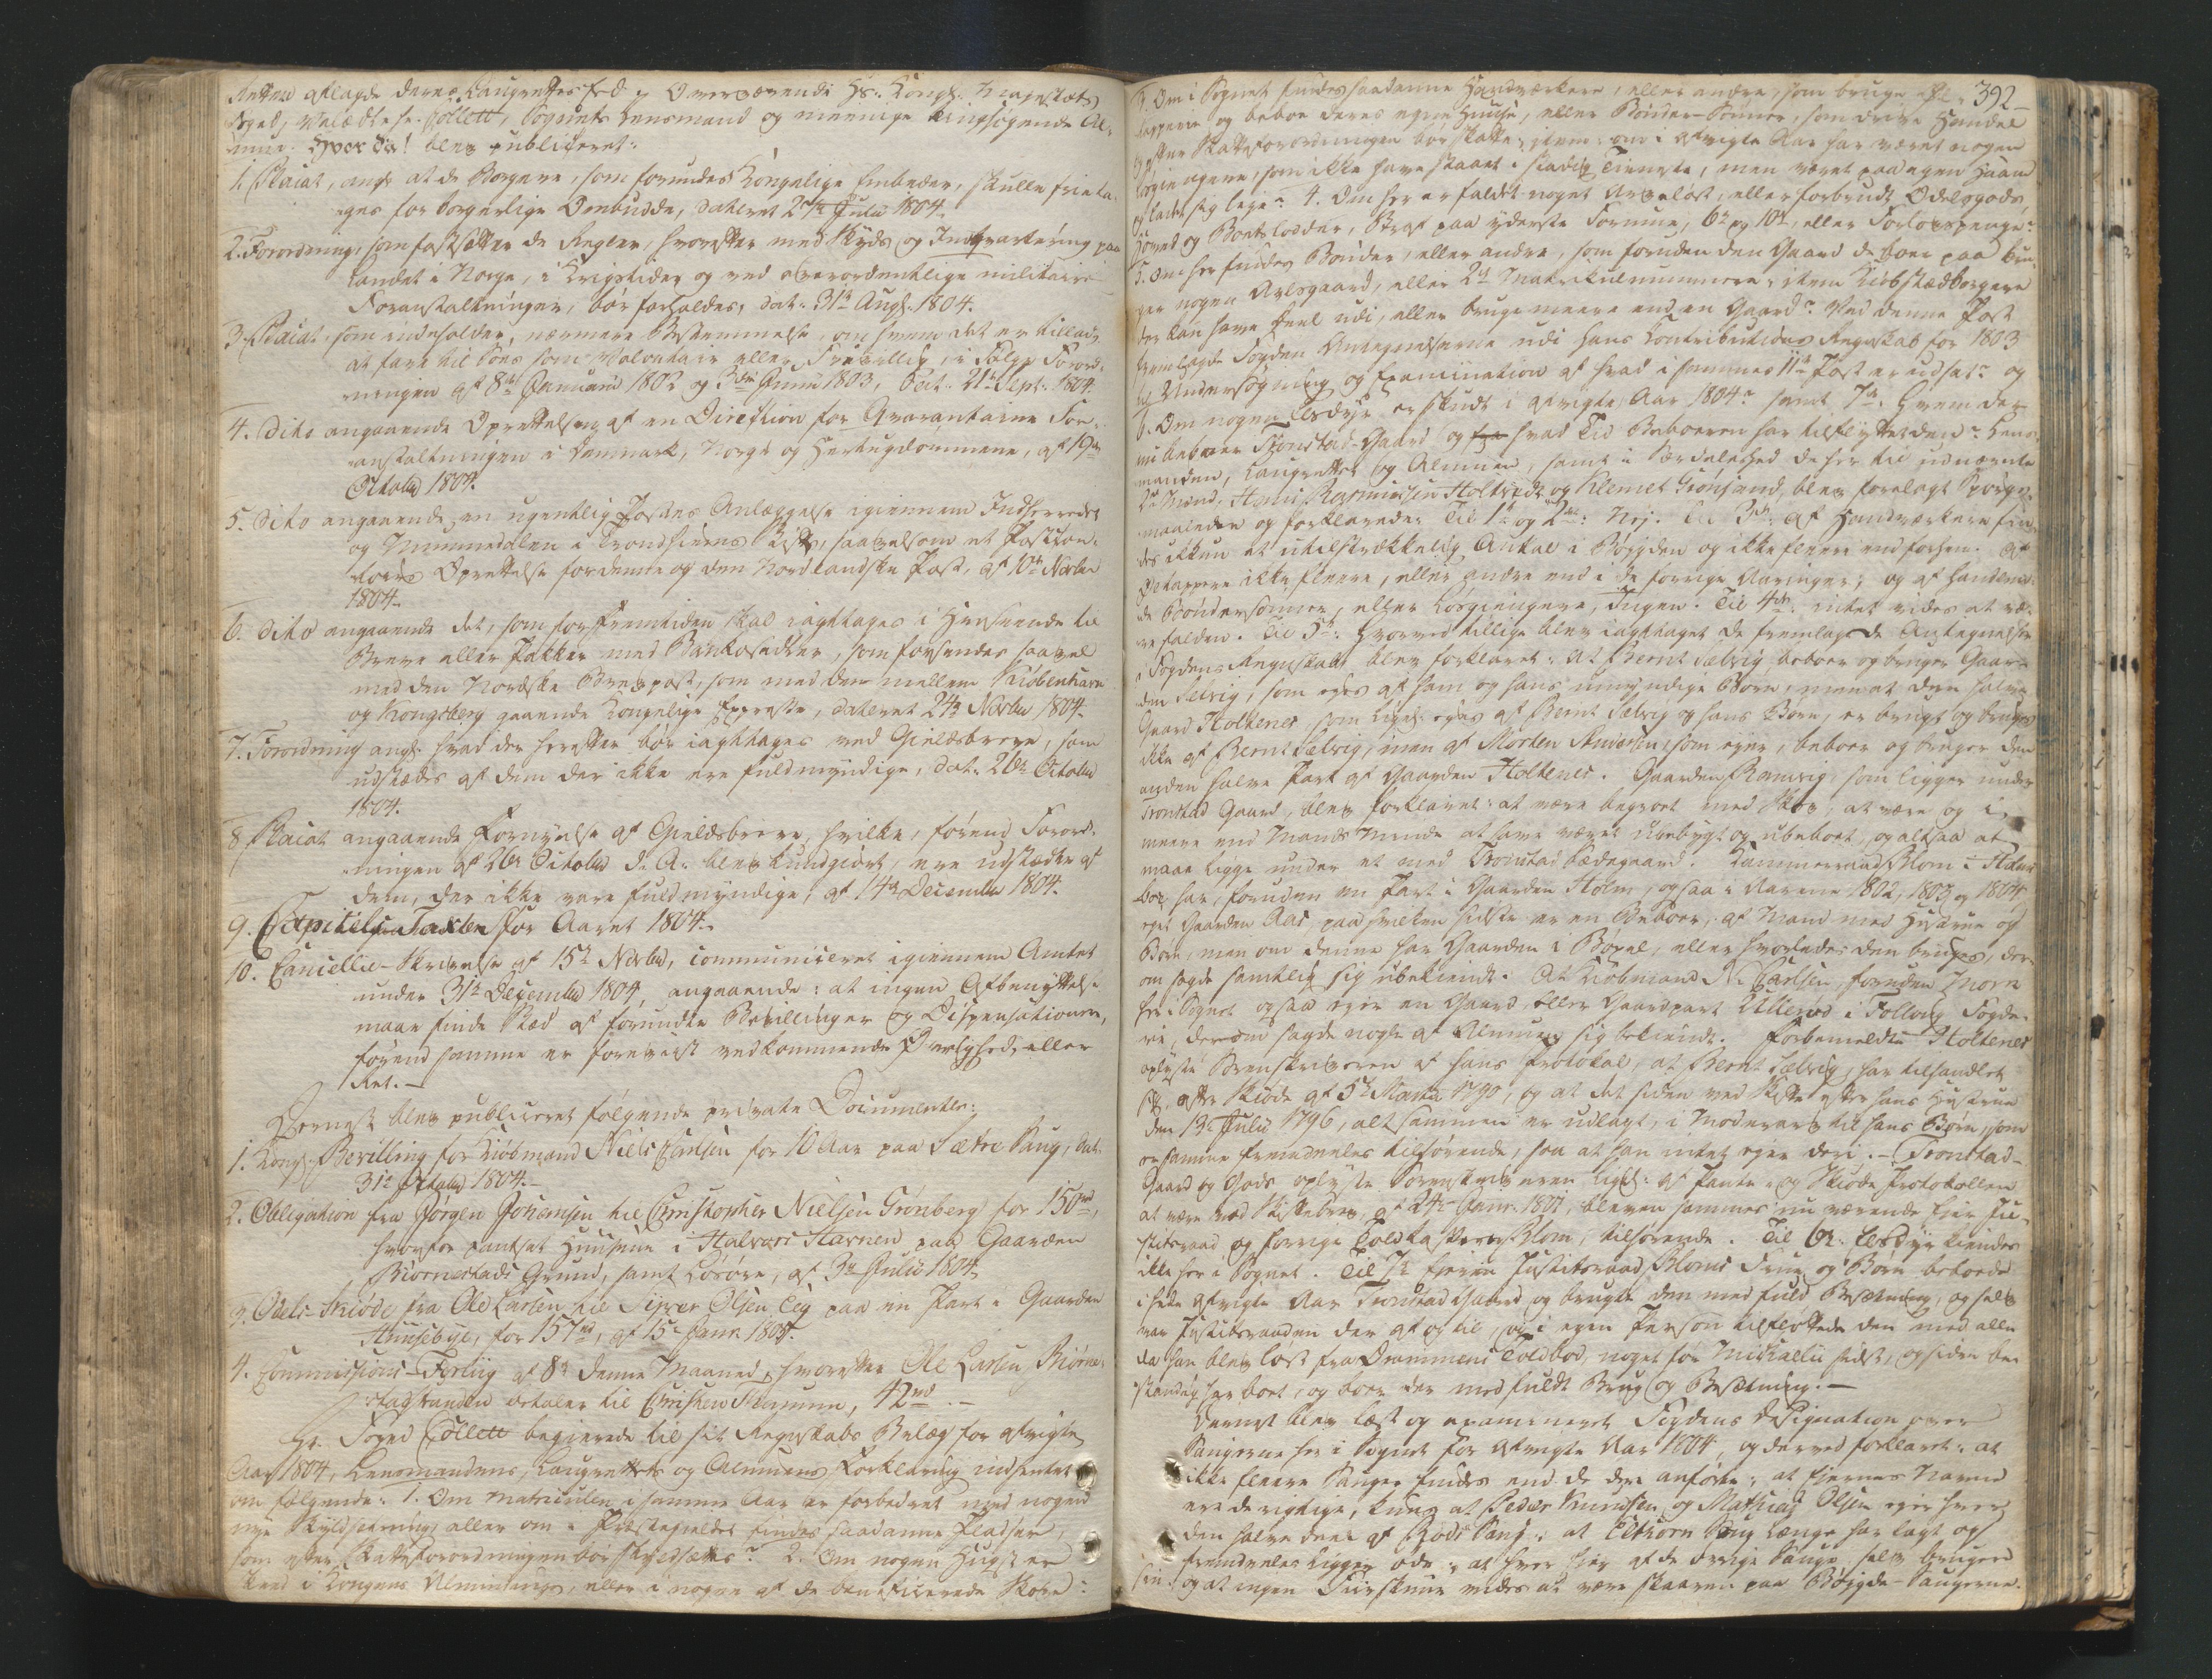 Retten aflagde deres Laugrettes Eed og Overværende Hr. Kongl. Majestæts
Foged, Velædle hr. Collett, Sognets Lensmand og meenige tingsøgende Al-
mue. Hvor da! blev publiceret:
1. Placat, angl. at de Borgere, som forundes Kongelige Embeder, skulle fritages
for borgerlige Ombudde, dateret Julii 1804.
2. Forordning, som fastsætter de Regler, hvorefter med Skyds og Indqvartering paa
Landet i Norge, i Krigstider og ved overordentlige militaire
Foranstaltninger, bør forholdes, dat. 31te Augl. 1804.
3. Placat, som indeholder, nærmere Bestemmelse, om hvem det er tilladt
at fare til Søes som Volontair eller Frivillig, i Følge Forord-
ningen af 8de Januarii 1802 og 3die Junii 1803, Dat. 21de Sept. 1804.
4. Dito angaaende Oprettelsen af en Direction for Qvarantaine For-
anstaltningen i Danmark, Norge og Hertugdommene, af 19de
October 1804.
5. Dito angaaende en ugentlig Postes Anlæggelse igiennem Indherredet
og Nummedalen i Trondhiems Stift, saavelsom et Postcon-
toirs Oprettelse for denne og den Nordlandske Post, af 10de Novbr
1804.
6. Dito angaaende det, som for Fremtiden skal iagttages i Henseende til
Breve eller Pakker med Bankosedler, som forsendes saavel
med den Nordske Brevpost, som med den mellem Kiøbenhavn
og Kongsberg gaaende Kongelige Expresse, dateret 24de Novbr 1804.
7. Forordning angl. hvad der herefter bør iagttages ved Gieldsbreve, som
udstædes af dem der ikke ere fuldmyndige, dat. 26de October
1804.
8. Placat angaaende Fornyelse af Gieldsbreve, hvilke, førend Forord-
ningen af 26de October d. A. blev kundgiort, ere udstædte af
dem, der ikke vare fuldmyndige, af 14de December 1804.
9. Capitels Taxten for Aaret 1804.
10. Cancellie-Skrivelse af 15de Novbr, communiceret igiennem Amtet
under 31te December 1804, angaaende: at ingen Afbenyttelse
maae finde Sted af forundte Bevillinger og Dispensationer,
førend samme er foreviist vedkommende Øvrighed, eller
Ret. –
Dernæst blev publiceret følgende private Documenter:
1. Kongl. Bevilling for Kiøbmand Niels Carlsen for 10 Aar paa Sætre Saug, dat.
31te October 1804. –
2. Obligation fra Jørgen Johansen til Christopher Nielsen Grønberg for 150 rd,
hvorfor pantsat Huusene i Halvors Havnen paa Gaarden
Biørnestads Grund, samt Løsøre, af 3de Julii 1804.
3. Odels-Skiøde fra Ole Larsen til Siver Olsen Teig paa en Part i Gaarden
Huusebye, for 157 rd, af 15de Janr. 1805.
4. Commissions-Forlig af 8de denne Maaned, hvorefter Ole Larsen Biørne-
stadstranden betaler til Christen 42 rd. –
Hr. Foged Collett begierede til sit Regnskabs Belæg for afvigte
Aar 1804, Lensmandens, Laugrettets og Almuens Forklaring indhentet
om følgende: 1. Om Matriculen i samme Aar er forbedret med nogen
nye Skyldsetning, eller om i Præstegieldet findes saadanne Pladser,
som efter Skatteforordningen bør skyldsættes? 2. Om nogen Hugst er
skeed i Kongens Alminding, eller i nogen af de beneficerede Skove:
392
3. Om i Sognet findes saadanne Handværkere, eller andre, som bruge
tapperie og beboe deres egne Huuse, eller Bønder-Sønner, som drive Handel
og efter Skatteforordningen bør skatte; item: om i afvigte Aar har været nogen
Løsgiengere, som ikke have staaet i stadig Tieneste, men været paa egen Haand
og ladet sig leye? 4. Om her er faldet noget Arveløst, eller forbrudt Odelsgods,
Hoved og Boeslodder, Straf paa yderste Formue, 6te og 10de, eller Forlovspenge?
5. Om her findes Bønder, eller andre, som foruden den Gaard de boer paa bru-
ger nogen Avlsgaard, eller 2de Matriculnummere; item Kiøbstædborgere
der kan have Deel udi, eller bruge meere end en Gaard? Ved denne Post
fremlagde Fogden Antegnelserne udi hans Contributions Regnskab for 1803
til Undersøgning og Examination af hvad i sammes 11te Post er udsat? og
6. Om nogen Elsdyr er skudt i afvigte Aar 1804? samt 7de: Hvem der
nu beboer Tronstad-Gaard og hvad Tid Beboeren har tilflyttet den? Lens-
manden, Laugrettet og Almuen, samt i Særdeleshed de her til udnævnte
2de Mænd, Hans Rasmussen Holtnes og Klemet Grønsand, blev forelagt Spørgs-
maalene og forklarede: Til 1te og 2den: Nej. Til 3die: Af Handværkere fin-
des ikkun et utilstrækkelig Antal i Bøygden og ikke fleere end forhen. Af
Øltappere ikke fleere, eller andre end i de forrige Aaringer; og af handlen-
de Bøndersønner, eller Løsgiengere, Ingen. Til 4de: intet vides at væ-
re falden. Til 5te: hvorved tillige blev iagttaget de fremlagde Antegnelser
i Fogdens Regnskab, blev forklaret: At Bernt Selvig beboer og bruger Gaar-
den Selvig, som eyes af ham og hans umyndige Børn, men at den halve
Gaard Holtenes, som ligel. eyes af Bernt Selvig og hans Børn, er brugt og bruges
ikke af Bernt Selvig, men af Morten Andersen, som eyer, beboer og bruger den
anden halve Part af Gaarden Holtenes. Gaarden Ramvig, som ligger under
Tronstad Gaard, blev forklaret: at være begroet med Skov, at være og i
meere end Mands Minde at have været ubebygt og ubeboet, og altsaa at
maae ligge under et med Tronstad Sædegaard. Kammerraad Blom i
har, foruden en Part i Gaarden Holm, ogsaa i Aarene 1802, 1803 og 1804
eyet Gaarden Aas, paa hvilken sidste er en Beboer, af Mand med Hustrue og
Børn, men om denne har Gaarden i Bøxel, eller hvorledes den bruges, der-
om sagde samtlig sig ubekiendt. At Kiøbmand N. Carlsen, foruden
her i Sognet ogsaa eyer en Gaard eller Gaardpart Ullerød i Follovig Fogde-
rie, derom sagde nogle af Almuen sig bekiendt. Forbemeldte Holtenes
oplyste Sorenskriveren af hans Protokol, at Bernt Selvig har tilhandlet
sig, efter Skiøde af 5te Martii 1790, og at det siden ved Skifte efter hans Hustrue
den 13de Julii 1796, altsammen er udlagt, i Mødrenearv til hans Børn, som
er samme fremdeeles tilhørende, saa at han intet eyer deri. – Tronstad-
Gaard og Gods oplyste Sorenskriveren ligel. af Pante- og Skiøde Protokollen
at være ved Skiftebrev af 24de Janr. 1801, bleven sammes nu værende Eier Ju-
stitsraad og forrige Toldkasserer Blom, tilhørende. Til 6te: Elsdyr kiendes
ikke her i Sognet. Til 7de Eyeren Justitsraad Bloms Frue og Børn beboede
i hele afvigte Aar Tronstad Gaard og brugte den med fuld Besætning, og selv
var Justitsraaden der af og til, og i egen Person tilflyttede den med alle
da han blev løst fra Drammens Toldbod, noget før Michaelii sidst, og siden be-
standig har boet, og boer der med fuldt Brug og Besætning. –
Dernæst blev læst og examineret Fogdens Designation over
Saugerne her i Sognet for afvigte Aar 1804, og derved forklaret: at
ikke fleere Sauger findes end de der anførte; at Eiernes Navne
ere de rigtige, kuns at Peder Knudsen og Mathias Olsen eyer hver
den halve deel af Røds Saug; at Elthorn Saug længe har lagt og
fremdeeles ligger øde; at hver Eyer af de øvrige Sauge selv bruger
sin: og at ingen Furskuur vides at være skaaren paa Bøigde-Saugerne.